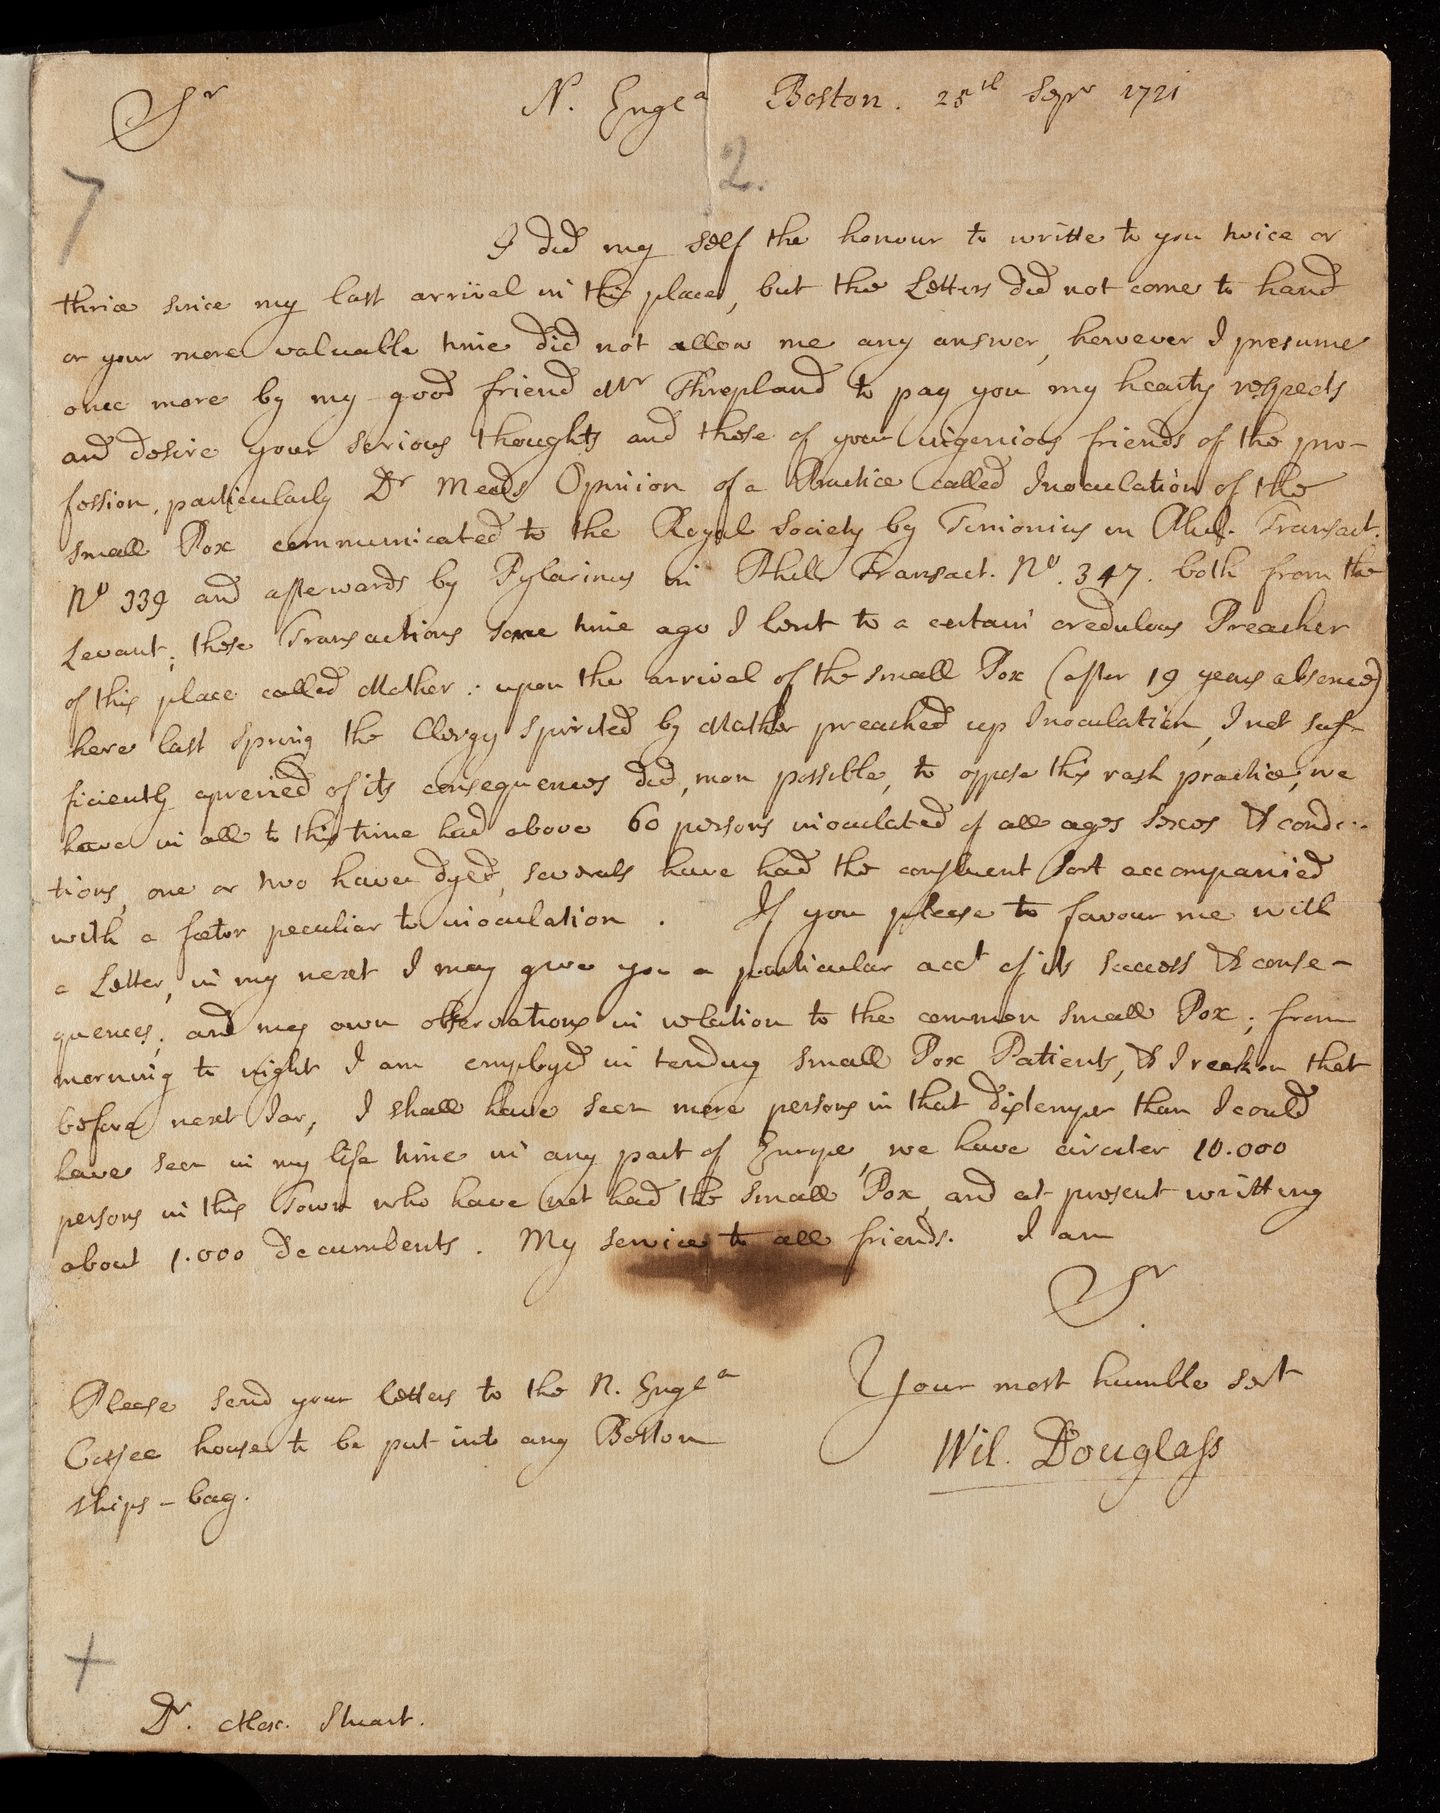 Sr N. Engla Boston. 25th Sepr 1721
7
2.
I did my self the honour to writte to you twice or
thrice since my last arrival in this place, but the Letters did not come to hand
or your more valuable time did not allow me any answer, however I presume
once more by my good friend Mr Threpland to pay you my hearty respects
and desire your serious thoughts and those of your ingenious friends of the pro-
fession, particularly Dr Meads Opinion of a Practice called Inoculation of the
small Pox communicated to the Royal Society by Timonius in Phil. Transact.
No 339 and afterwards by Pylarinus in Phil. Transact. No. 347. both from the
Levant; these Transactions some time ago I lent to a certain credulous Preacher
of this place called Mather: upon the arrival of the small Pox (after 19 years absence)
here last spring the Clergy spirited by Mather preached up Inoculation, I not suf-
ficiently aprised of its consequences did, mon possible, to oppose this rash practice, we
have in all to this time had above 60 persons inoculated of all ages sexes & condi-
tions, one or two have dyed, severals have had the confluent sort accompanied
with a fœtor peculiar to inoculation. If you please to favour me with
a Letter, in my next I may give you a particular acct of its success & conse-
quences; and my own observations in relation to the common small Pox; from
morning to night I am employd in tending small Pox Patients, & I reckon that
before next Jar, I shall have seen more persons in that distemper than I could
have seen in my life time in any part of Europe, we have circiter 10.000
persons in this Town who have not had the small Pox, and at present writting
about 1.000 decumbents. My service to all friends. I am
Sr.
Your most humble sert
Wil. Douglass
Please send your letters to the N. Engla
Coffee house to be put into any Boston
ships-bag.
+
Dr. Alex. Stuart.